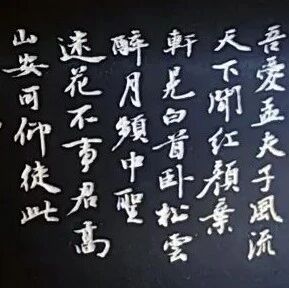 吾愛孟夫子風流
天下聞紅顏棄
軒冕白首臥松雲
醉月頻中聖
迷花不事君高
山安可仰徒此